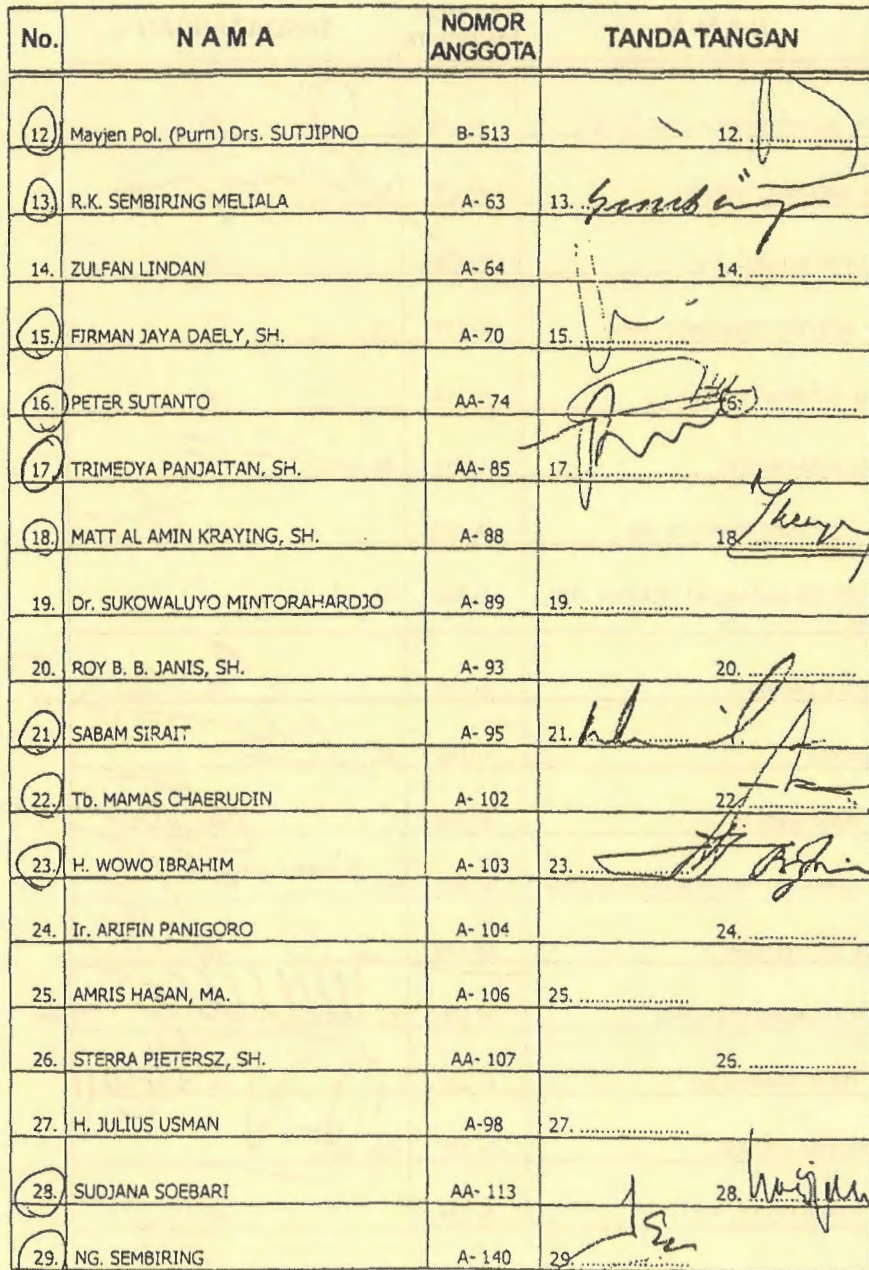 No. NAMA NOMOR ANGGOTA TANDA TANGAN
12. Mayjen Pol. (Purn) Drs. SUTJIPNO B- 513 12. ....................
13. R.K. SEMBIRING MELIALA A- 63 13. ....................
14. ZULFAN LINDAN A- 64 14. ....................
15. FIRMAN JAYA DAELY, SH. A- 70 15. ....................
16. PETER SUTANTO AA- 74 16. ....................
17. TRIMEDYA PANJAITAN, SH. AA- 85 17. ....................
18. MATT AL AMIN KRAYING, SH. A- 88 18. ....................
19. Dr. SUKOWALUYO MINTORAHARDJO A- 89 19. ....................
20. ROY B. B. JANIS, SH. A- 93 20. ....................
21. SABAM SIRAIT A- 95 21. ....................
22. Tb. MAMAS CHAERUDIN A- 102 22. ....................
23. H. WOWO IBRAHIM A- 103 23. ....................
24. Ir. ARIFIN PANIGORO A- 104 24. ....................
25. AMRIS HASAN, MA. A- 106 25. ....................
26. STERRA PIETERSZ, SH. AA- 107 26. ....................
27. H. JULIUS USMAN A-98 27. ....................
28. SUDJANA SOEBARI AA- 113 28. ....................
29. NG. SEMBIRING A- 140 29. ....................